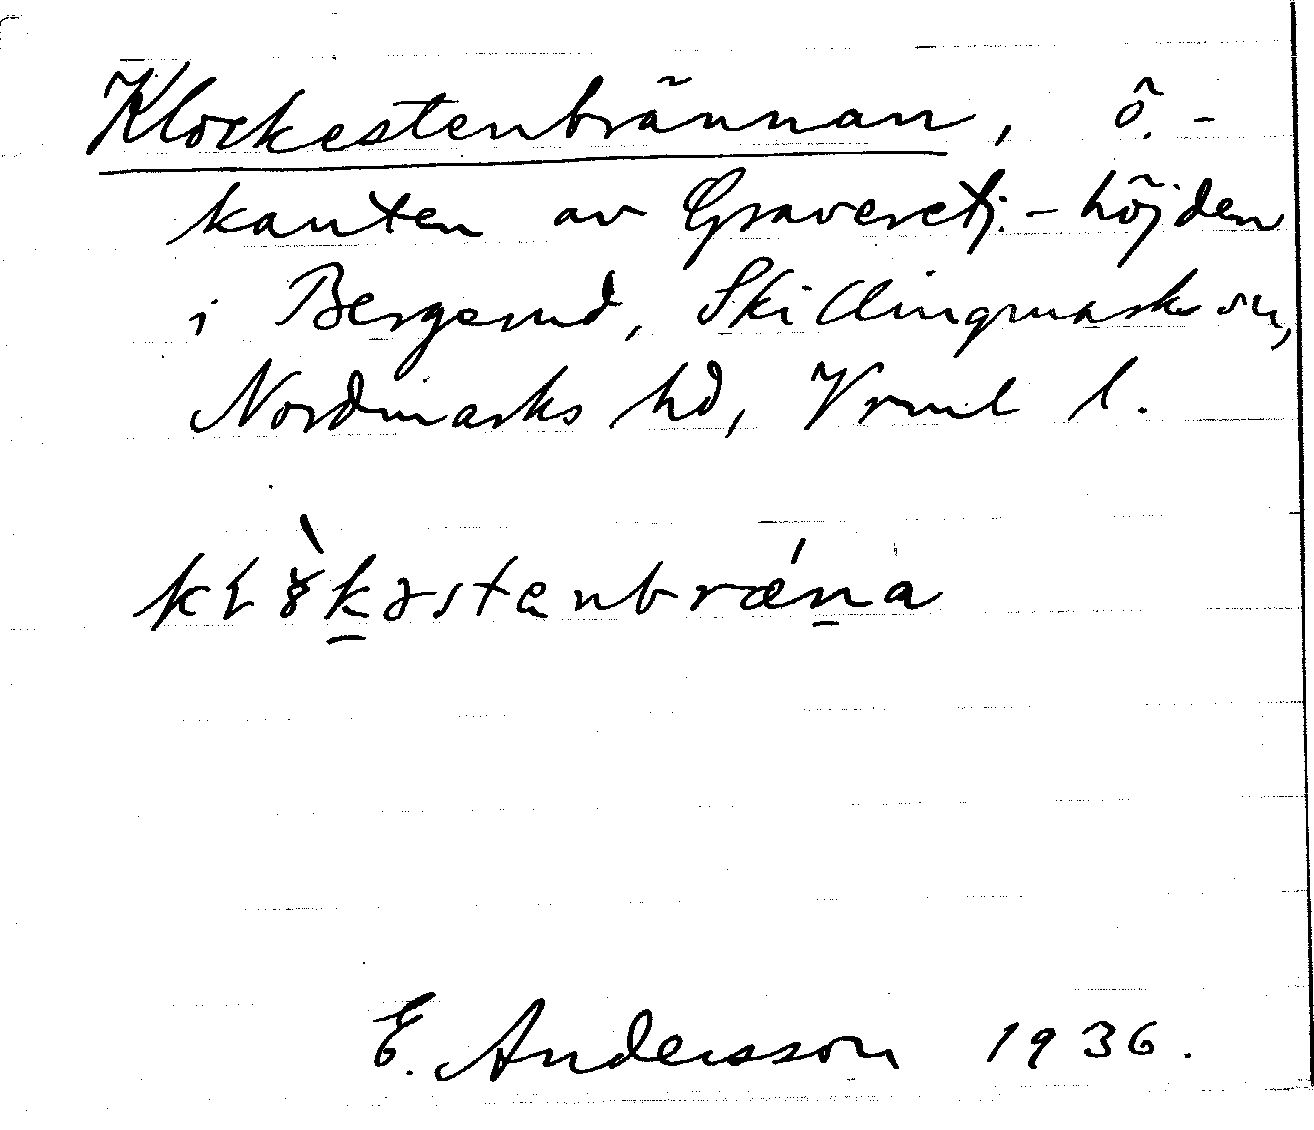 Klockestenbrännan, ö. -
kanten av Graveretj. - höjden
i Bergerud, Skillingmarks sn,
Nordmarks hd, Vrml l.
E. Andersson 1936.